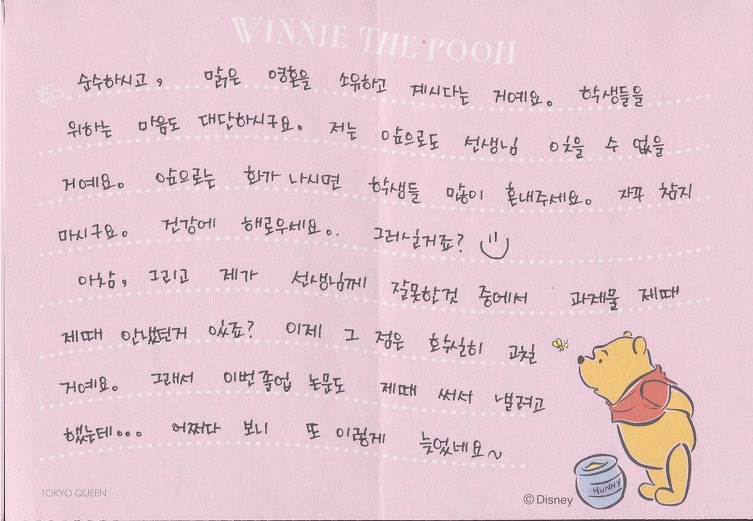 WINNIE THE POOH
순수하시고, 맑은 영혼을 소유하고 계시다는 거예요. 학생들을
위하는 마음도 대단하시구요. 저는 앞으로도 선생님 잊을 수 없을
거예요. 앞으로는 화가 나시면 학생들 많이 혼내주세요. 자꾸 참지
마시구요. 건강에 해로우세요.. 그러실거죠?
아참, 그리고 제가 선생님께 잘못한것 중에서 과제물 제때
제때 안냈던거 있죠? 이제 그 점은 확실히 고칠
거예요. 그래서 이번 졸업 논문도 제때 써서 낼려고
했는데... 어쩌다 보니 또 이렇게 늦었네요~
HUNNY
TOKYO QUEEN
© Disney